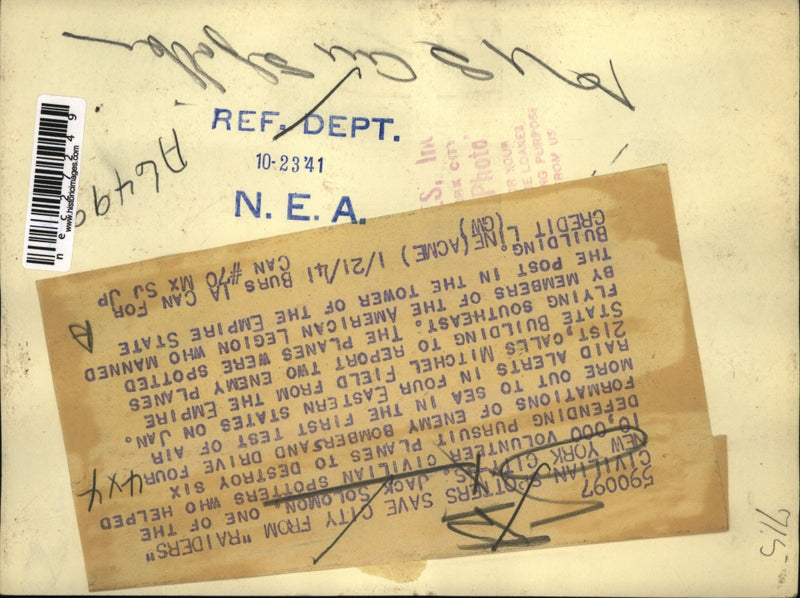 REF. DEPT.
10-23'41
N. E. A.
A6499
www.historicimages.com
S. In
RK CITY
Photo
R YOUR
E LOANED
NG PURPOSE
ROM US
590097
CIVILIAN SPOTTERS SAVE CITY FROM "RAIDERS"
NEW YORK CITY.. JACK SOLOMON, ONE OF THE
10,000 VOLUNTEER CIVILIAN SPOTTERS WHO HELPED
DEFENDING PURSUIT PLANES TO DESTROY SIX
FORMATIONS OF ENEMY BOMBERS AND DRIVE FOUR
MORE OUT TO SEA IN THE FIRST TEST OF AIR
RAID ALERTS IN FOUR EASTERN STATES ON JAN.
21ST, CALLS MITCHEL FIELD FROM THE EMPIRE
STATE BUILDING TO REPORT TWO ENEMY PLANES
FLYING SOUTHEAST. THE PLANES WERE SPOTTED
BY MEMBERS OF THE AMERICAN LEGION WHO MANNED
THE POST IN THE TOWER OF THE EMPIRE STATE
BUILDING.
CREDIT LINE (ACME) 1/21/41 BURS 1A CAN FOR
(GW) CAN #70 MX SJ JP
4x4